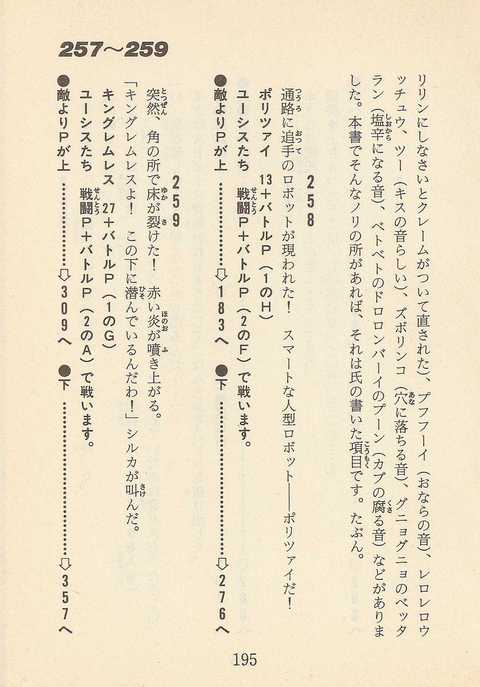 257〜259
リリンにしなさいとクレームがついて直された)、プフフーイ(おならの音)、レロレロウ
ッチュウ、ツー(キスの音らしい)、ズボリンコ(穴に落ちる音)、グニョグニョのベッタ
ラン(塩辛になる音)、ベトベトのドロロンバーイのプーン(カブの腐る音)などがありま
した。本書でそんなノリの所があれば、それは氏の書いた項目です。たぶん。
258
通路に追手のロボットが現われた! スマートな人型ロボット——ポリツァイだ!
ポリツァイ 13+バトルP(1のH)
ユーシスたち 戦闘P+バトルP(2のF)で戦います。
●敵よりPが上…………⇨183へ ●下…………⇨276へ
259
突然、角の所で床が裂けた! 赤い炎が噴き上がる。
「キングレムレスよ! この下に潜んでいるんだわ!」シルカが叫んだ。
キングレムレス 27+バトルP(1のG)
ユーシスたち 戦闘P+バトルP(2のA)で戦います。
●敵よりPが上…………⇨309へ ●下…………⇨357へ
195